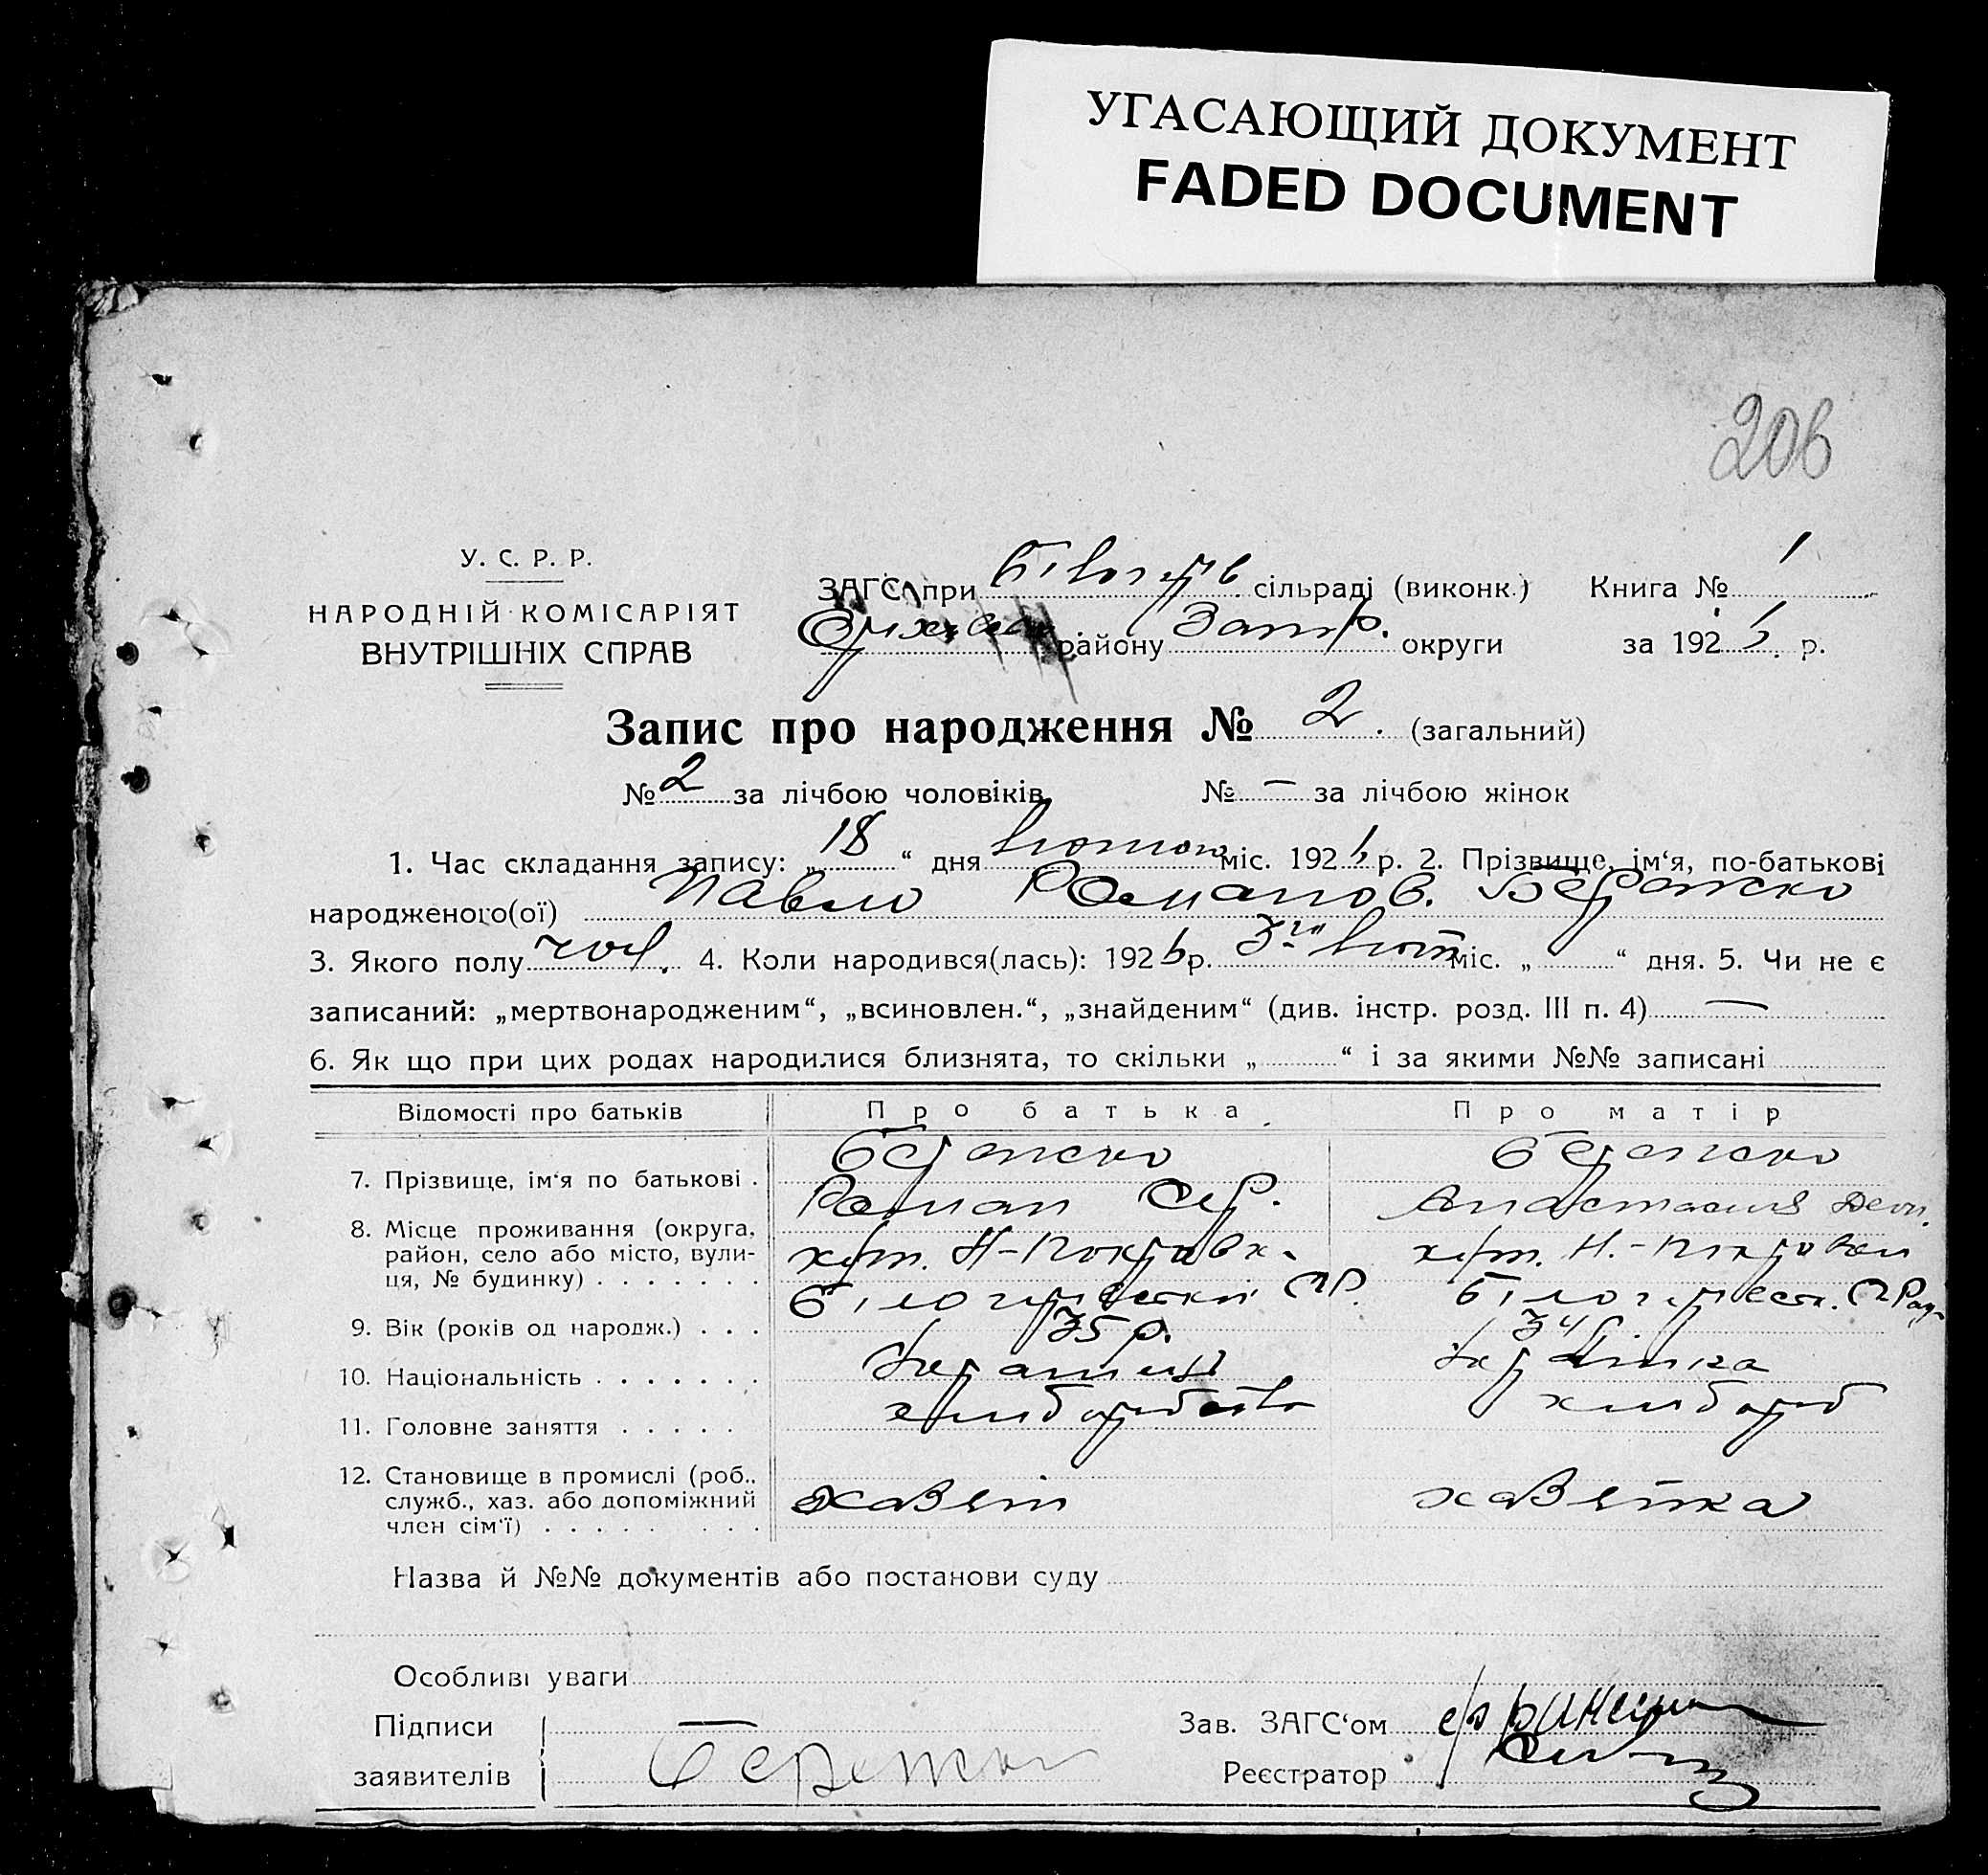 УГАСАЮЩИЙ ДОКУМЕНТ
FADED DOCUMENT
206
У. С. Р. Р.
НАРОДНІЙ КОМІСАРІЯТ
ВНУТРІШНІХ СПРАВ
ЗАГС при сільраді (виконк.) Книга № 1
району Запр. округи за 1926 р.
Запис про народження № 2. (загальний)
№ 2 за лічбою чоловіків № — за лічбою жінок
1. Час складання запису: „18“ дня лютого міс. 1926 р. 2. Прізвище, ім‘я, по-батькові
народженого(ої) Павло Романов. Бережко
3. Якого полу чол. 4. Коли народився(лась): 1926 р. 3го лют міс. „ “ дня. 5. Чи не є
записаний: „мертвонародженим“, „всиновлен.“, „знайденим“ (див. інстр. розд. III п. 4) —
6. Як що при цих родах народилися близнята, то скільки „ “ і за якими №№ записані
Відомості про батьків Про батька Про матір
7. Прізвище, ім‘я по батькові . Бережко Роман Сер. Бережко Анастасия Дем.
8. Місце проживання (округа, район, село або місто, вулиця, № будинку) . . . . . . . хут. Н-Покровк. С.Р. хут. Н.-Покровки
9. Вік (років од народж.) . . . 35 р. 34 р.
10. Національність . . . . . . . Украинец Украинка
11. Головне заняття . . . . . хлиборобство хлибороб
12. Становище в промислі (роб., служб., хаз. або допоміжний член сім‘ї) . . . . . . . . хазяин хазяйка
Назва й №№ документів або постанови суду
Особливі уваги
Підписи заявителів Бережко
Зав. ЗАГС‘ом
Реєстратор